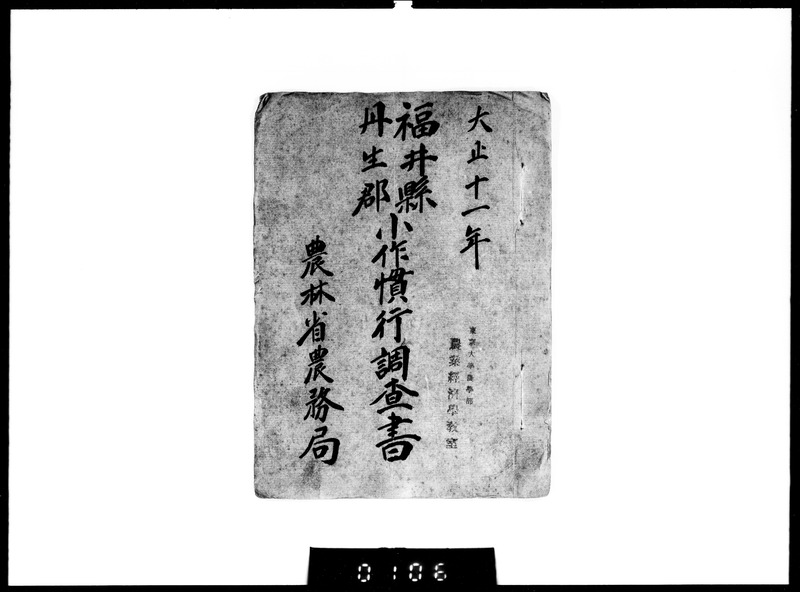 大正十一年
福井縣
丹生郡
小作慣行調査書
農林省農務局
東京大學農學部
農業經濟學教室
0106